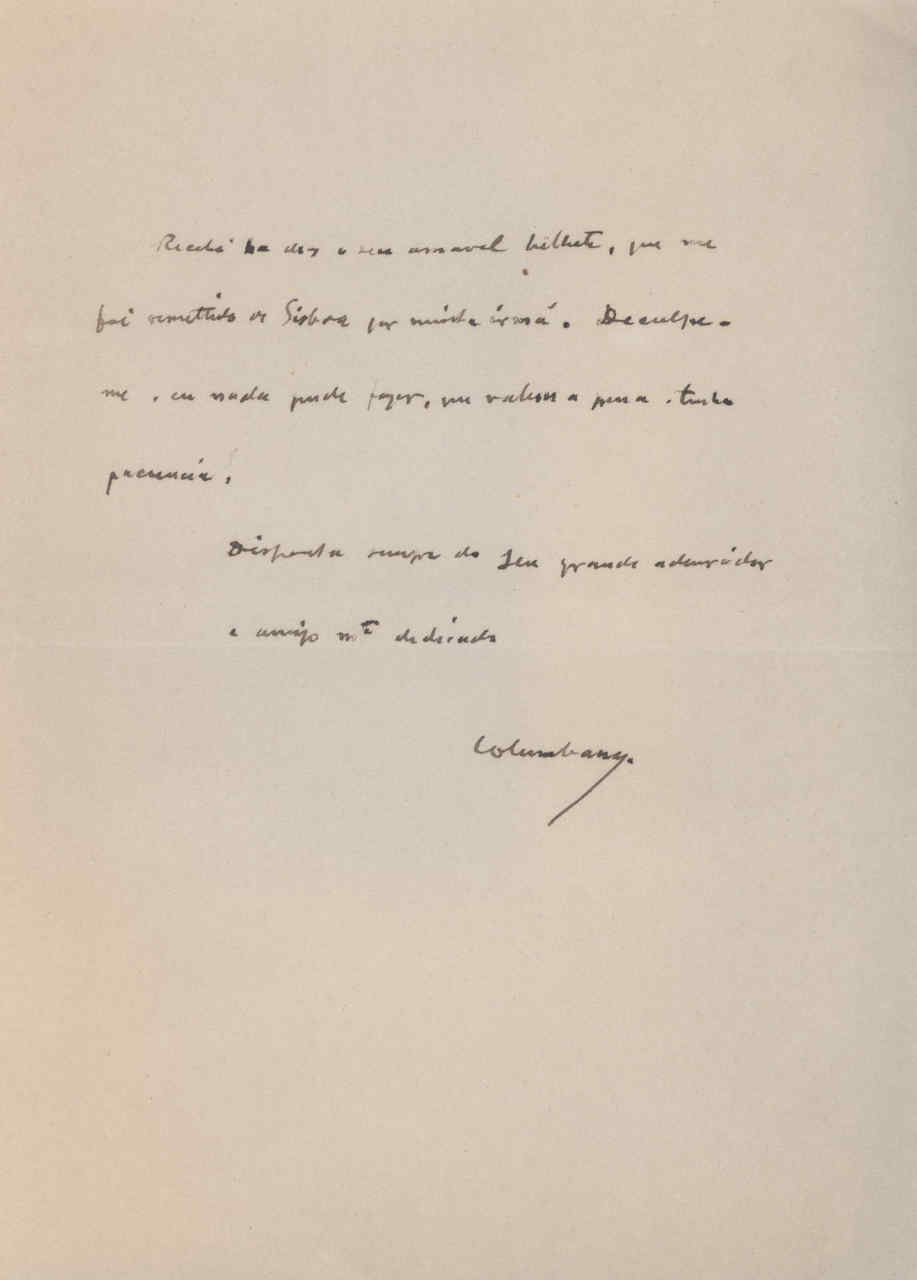 Recebi ha dias o seu amavel bilhete, que me
foi remettido de Lisboa por minha irmá. Desculpe-
me, eu nada pude fazer, que valesse a pena. tenha
paciencia.
Disponha sempre do seu grande admirádor
e amigo mto dedicado
Columbano.